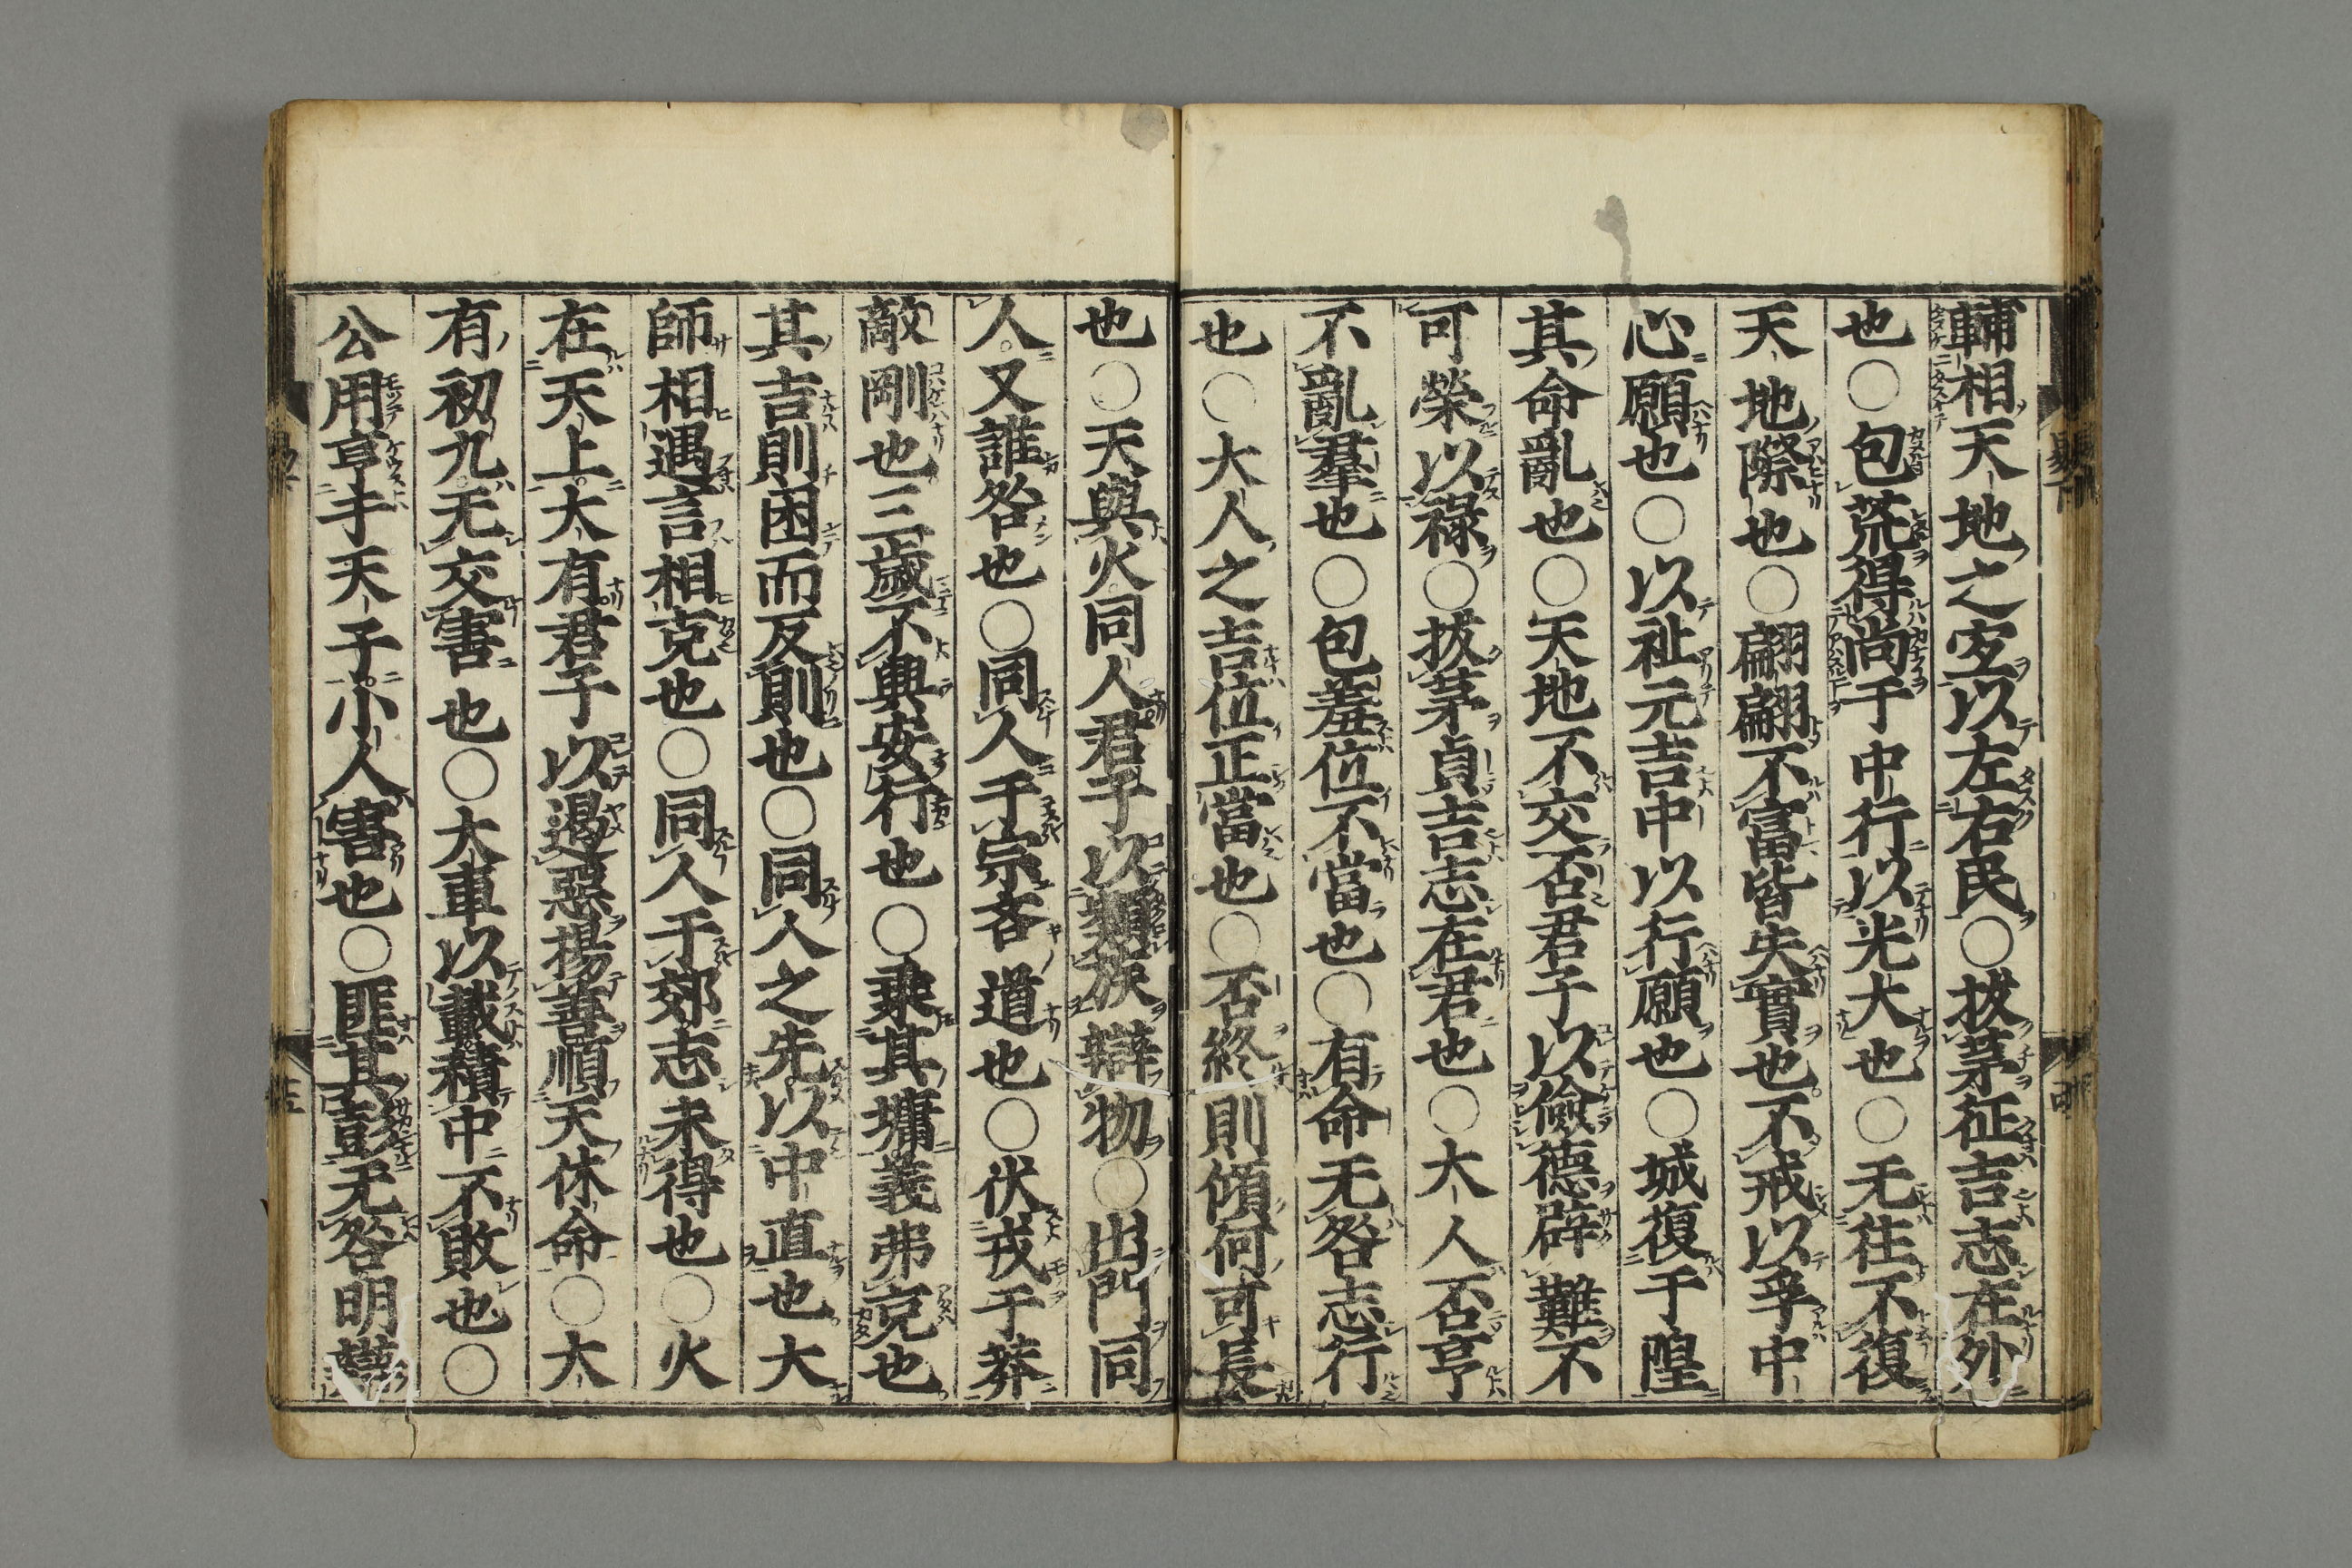 輔相天地之宐以左右民○拔茅征吉志在外
也○包荒得尚于中行以光大也○无往不復
天地際也○翩翩不富皆失實也不戒以孚中
心願也○以祉元吉中以行願也○城復于隍
其命亂也○天地不交否君子以儉德辟難不
可榮以祿○拔茅貞吉志在君也○大人否亨
不亂羣也○包羞位不當也○有命无咎志行
也○大人之吉位正當也○否終則傾何可長
也○天與火同人君子以類族辯物○出門同
人又誰咎也○同人于宗吝道也○伏戎于莽
敵剛也三歲不興安行也○乘其墉義弗克也
其吉則困而反則也○同人之先以中直也大
師相遇言相克也○同人于郊志未得也○火
在天上大有君子以遏惡揚善順天休命○大
有初九无交害也○大車以載積中不敗也○
公用亨于天子小人害也○匪其彭无咎明辯